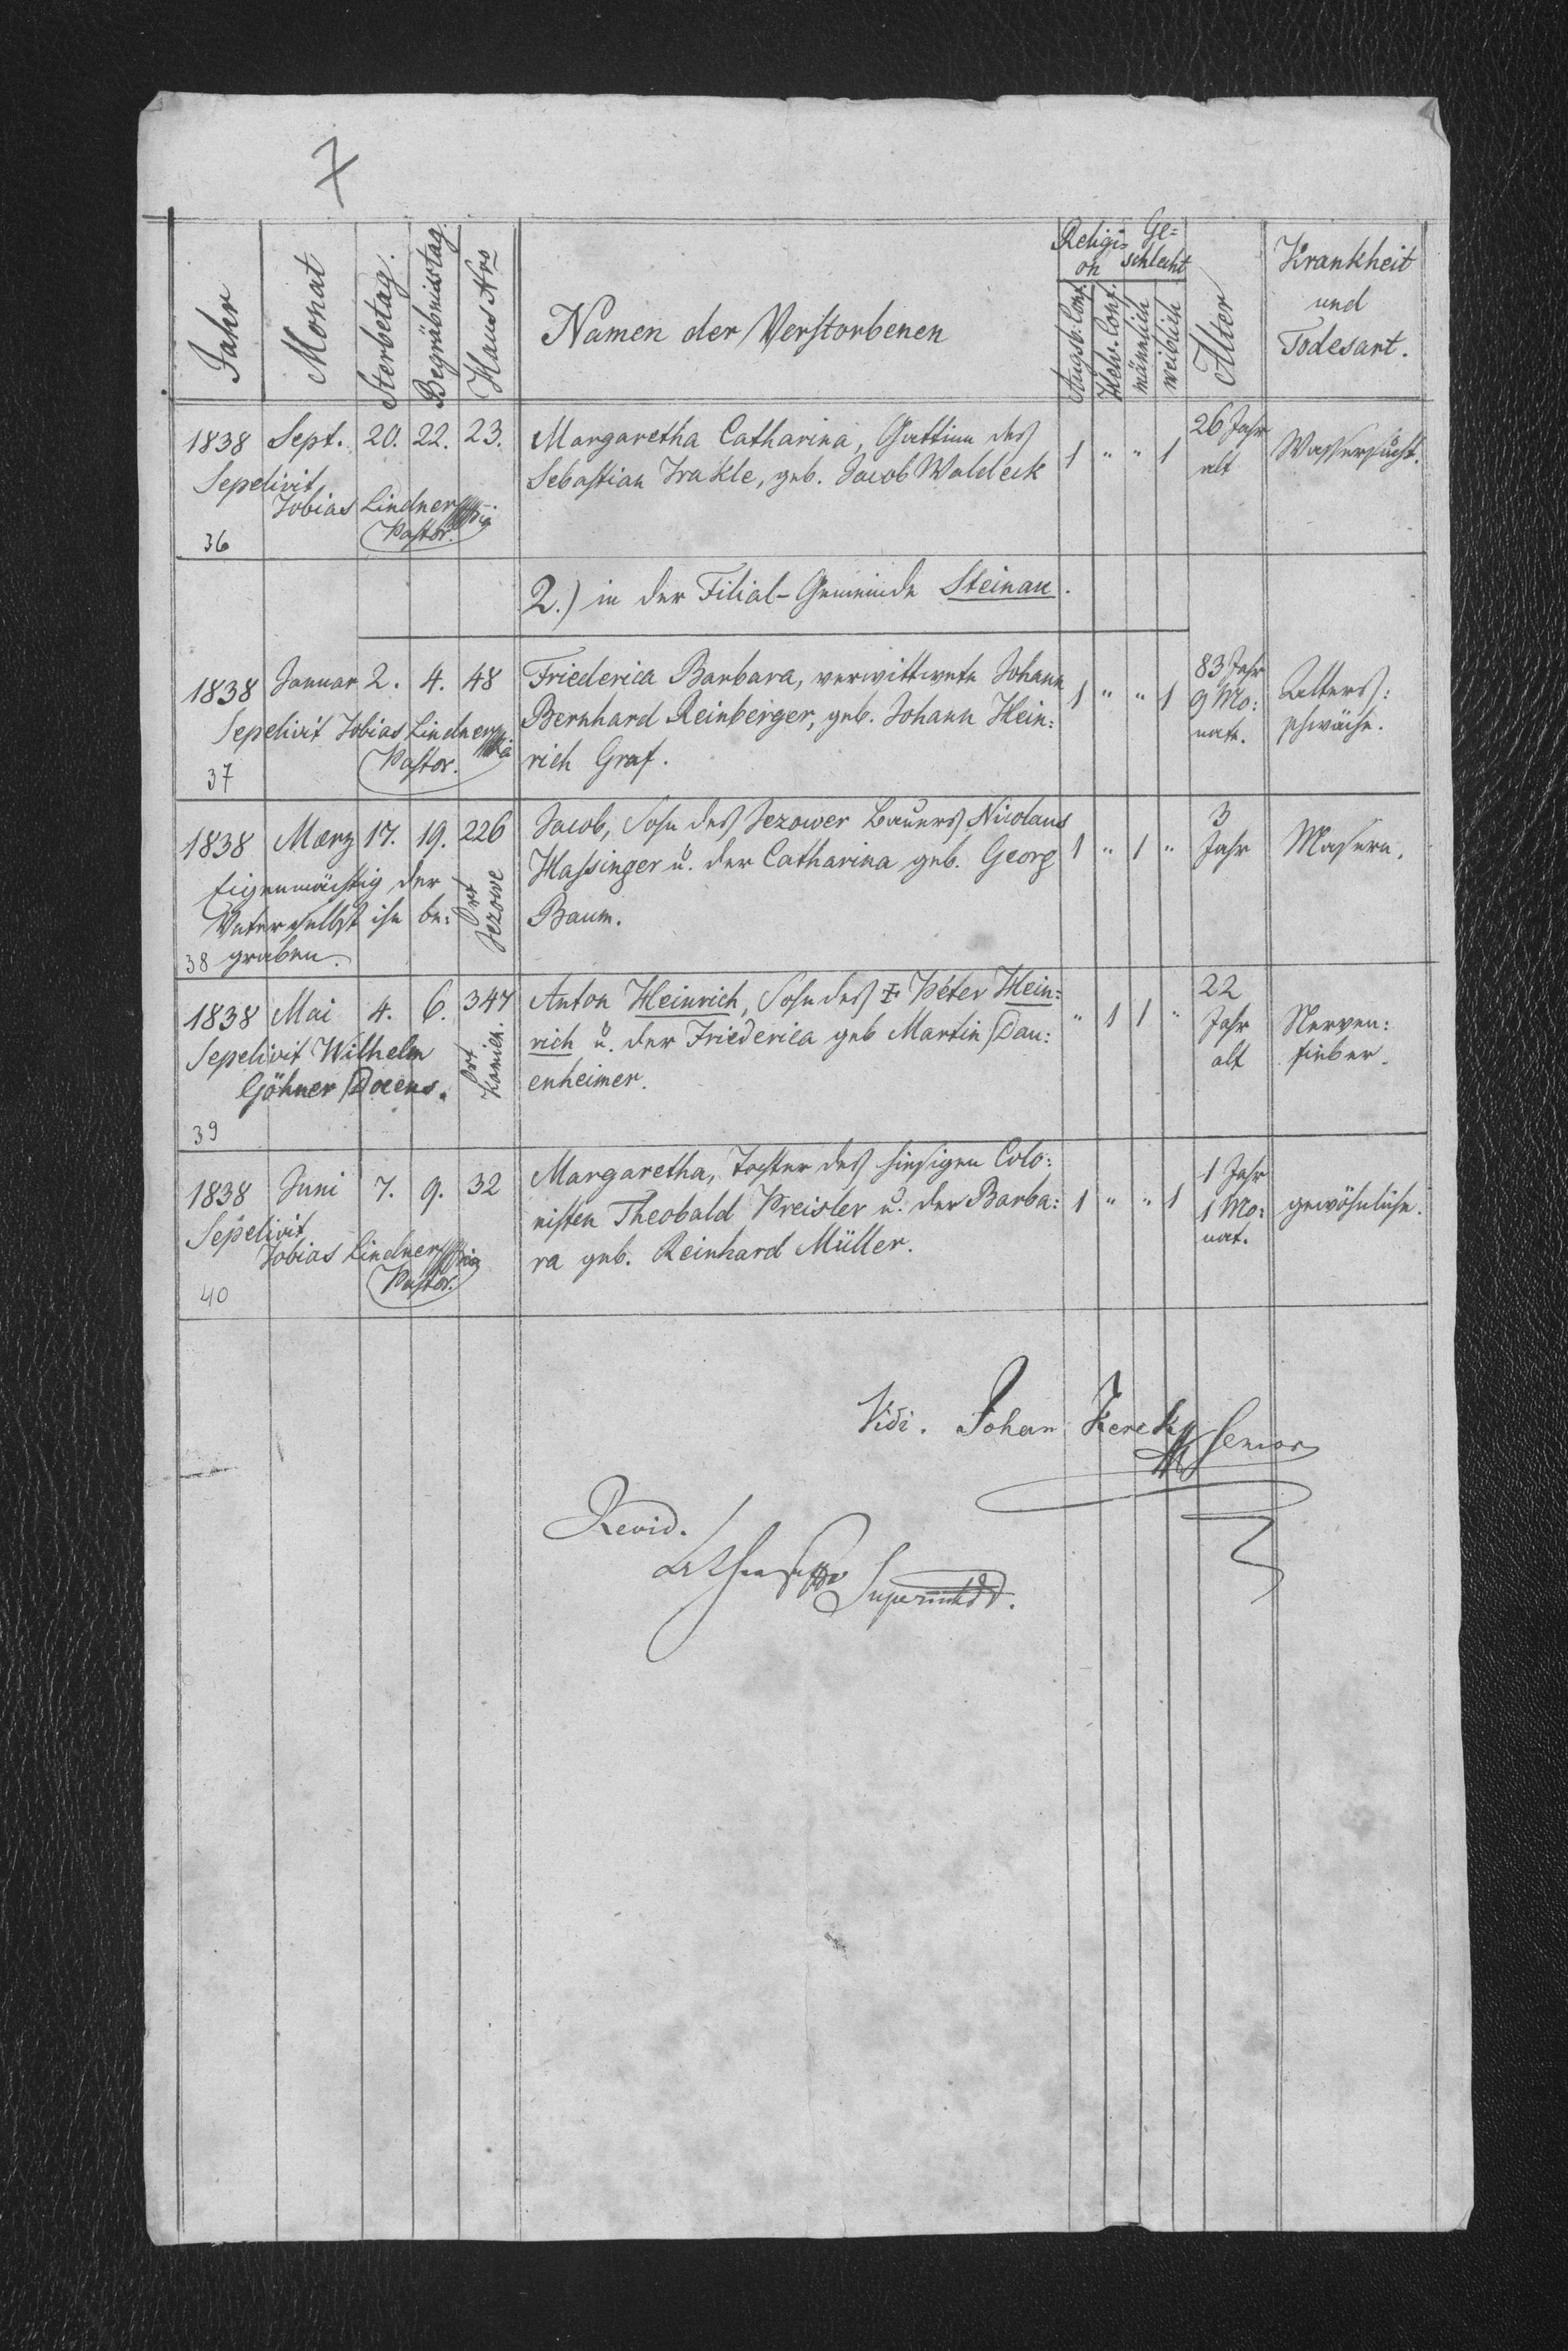 7
Jahr Monat Sterbetag. Begräbnisstag. Haus Nro Namen der Verstorbenen Religi= on Augsb. Conf. Helv. Conf. Ge= schlecht männlich weiblich Alter Krankheit und Todesart.
1838 Sept. 20. 22. 23. Margaretha Catharina, Gattinn des 1 " " 1 26 Jahr Wassersucht.
Sebastian Irakle, geb. Jacob Waldeck alt
Sepelivit
Tobias Lindner
Pastor.
36
2.) in der Filial-Gemeinde Steinau.
1838 Januar 2. 4. 48 Friederica Barbara, verwittwete Johann 1 " " 1 83 Jahr Alters=
Bernhard Reinberger, geb. Johann Hein= 9 Mo= schwäche.
rich Graf. nate.
Sepelivit Tobias Lindner
Pastor.
37
1838 Mærz 17. 19. 226 Jacob, Sohn des Jezower Bauers Nicolaus 1 " 1 " 3 Masern.
Hassinger u. der Catharina geb. Georg Jahr
Baum.
Eigenmächtig der
Vater selbst ihn be=
graben.
Ort Jezowe
38
1838 Mai 4. 6. 347 Anton Heinrich, Sohn des Peter Hein= " 1 1 " 22 Nerven=
rich u. der Friederica geb Martin Dau= Jahr fieber.
enheimer. alt
Sepelivit Wilhelm
Göhner Docens.
Ort Kamien.
39
1838 Juni 7. 9. 32 Margaretha, Tochter des hiesigen Colo= 1 " " 1 1 Jahr gewöhnliche.
nisten Theobald Preisler u. der Barba= 1 Mo=
ra geb. Reinhard Müller. nat.
Sepelivit
Tobias Lindner
Pastor.
40
Vidi. Johan Senior
Revid.
Superintdt.